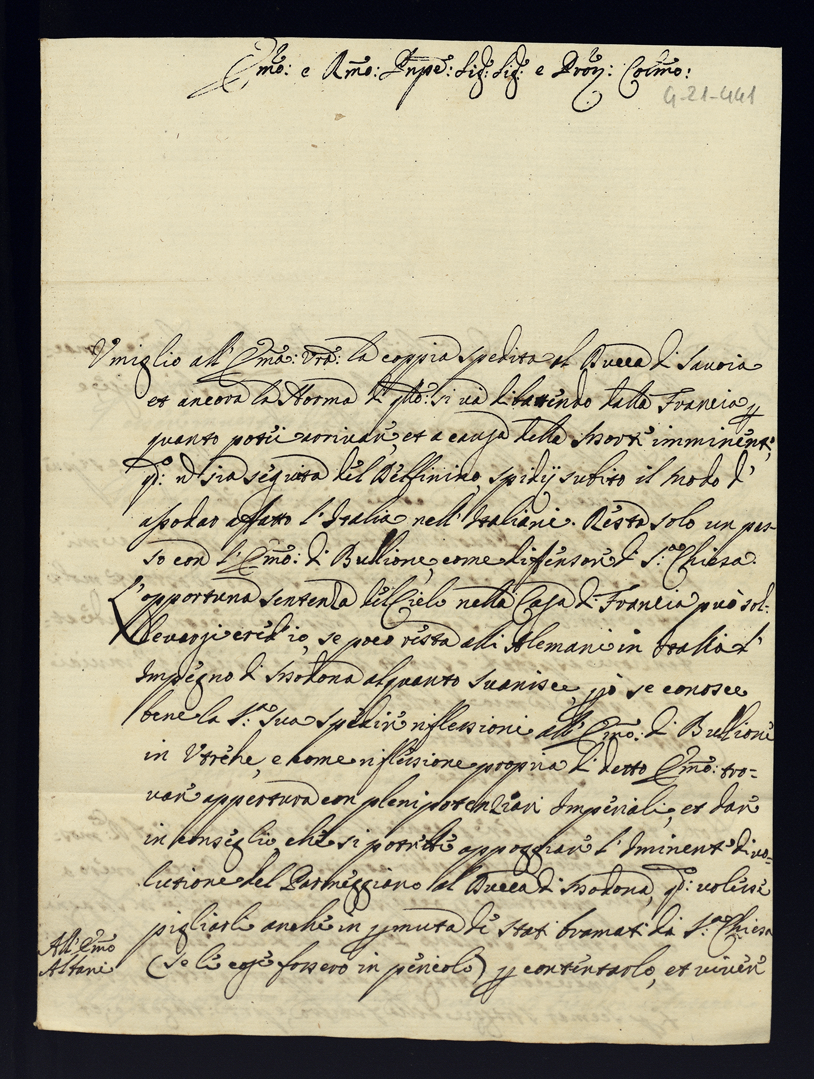 Emo: e Rmo: Pnpe: Sig: Sig: e Pron: Colmo:
4-21-441
Umiglio all' Ema: Vra: la coppia spedita al Ducca di Savoia
et ancora la Norma di qto: si và dibattendo dalla Francia p
quanto potei arrivare, et a causa delle Morti imminenti,
sia seguita del Delfinino, spidij subito il modo d'
assodar affatto l'Italia nell' Italiani. Resta solo un pas-
so con l' Emo: di Bullione, come diffensore di S.a Chiesa.
L'opportuna sentenza del Cielo nella Casa di Francia può sol-
levarsi, se poco resta alli Alemani in Italia l'
Impegno di Modona alquanto suanisce, pò se conosce
bene la S.tà Sua spedire riflessioni all' Emo: di Bullione
in Utreche, e come riflessione propria di detto Emo: tro-
vare appertura con plenipotenziari Imperiali, et dare
in conseglio, che si potrebbe appoggiare l' Iminente divo-
lutione del Parmeggiano al Ducca di Modona, volesse
pigliarli anche in pmuta di stati bramati da S.a Chiesa
(se le cose fossero in pericolo) p contentarlo, et vivere
All' Emo
Albani